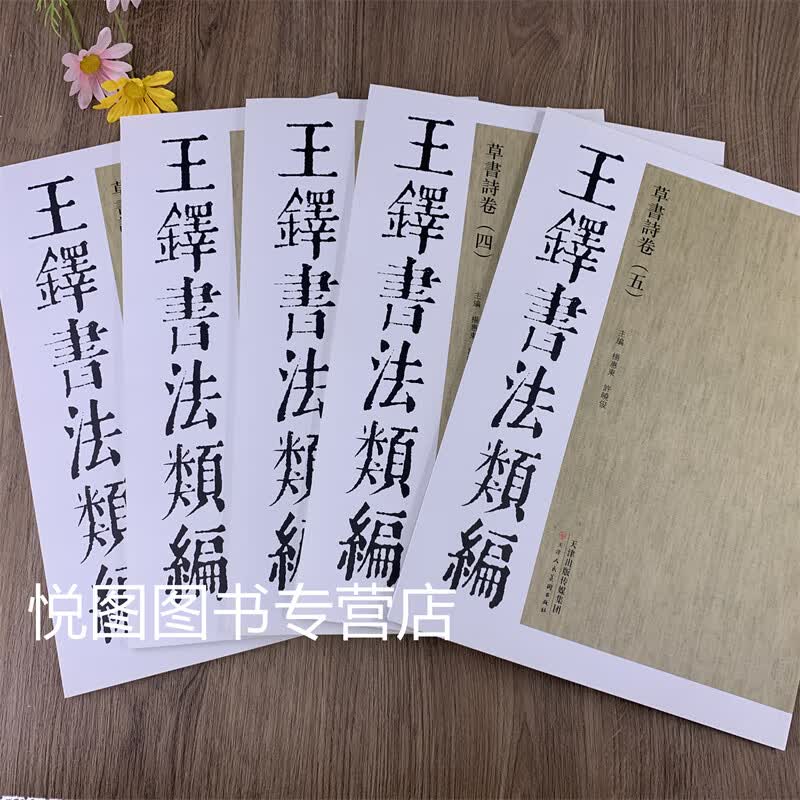 王鐸書法類編
草書詩
王鐸書法類編
王鐸書法類編
王鐸書法類編
草書詩卷（四）
主編 楊惠東
王鐸書法類編
草書詩卷（五）
主編 楊惠東 許曉俊
天津出版传媒集团
天津人民美術出版社
悦图图书专营店